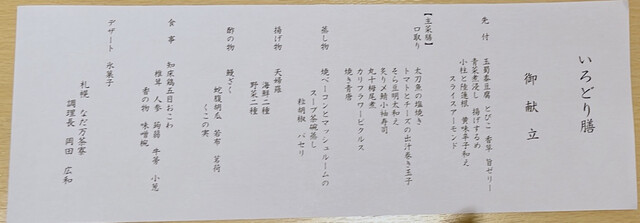 いろどり膳
御献立
先付 玉蜀黍豆腐 とびこ 香草 旨ゼリー
青菜煮浸し 揚げするめ
小柱と陸蓮根 黄味辛子和え
スライスアーモンド
【主菜膳】
口取り 太刀魚の塩焼き
トマトとチーズの出汁巻き玉子
そら豆明太和え
炙り〆鯖小袖寿司
丸十栂尾煮
カリフラワーピクルス
焼き青唐
蒸し物 焼ベーコンとマッシュルームの
スープ茶碗蒸し
粒胡椒 パセリ
揚げ物 天婦羅
海鮮二種
野菜二種
酢の物 鰻ざく
蛇腹胡瓜 若布 茗荷
くこの実
食事 知床鶏五目おこわ
椎茸 人参 蒟蒻 牛蒡 小葱
香の物 味噌椀
デザート 氷菓子
札幌 なだ万茶寮
調理長 岡田 広和